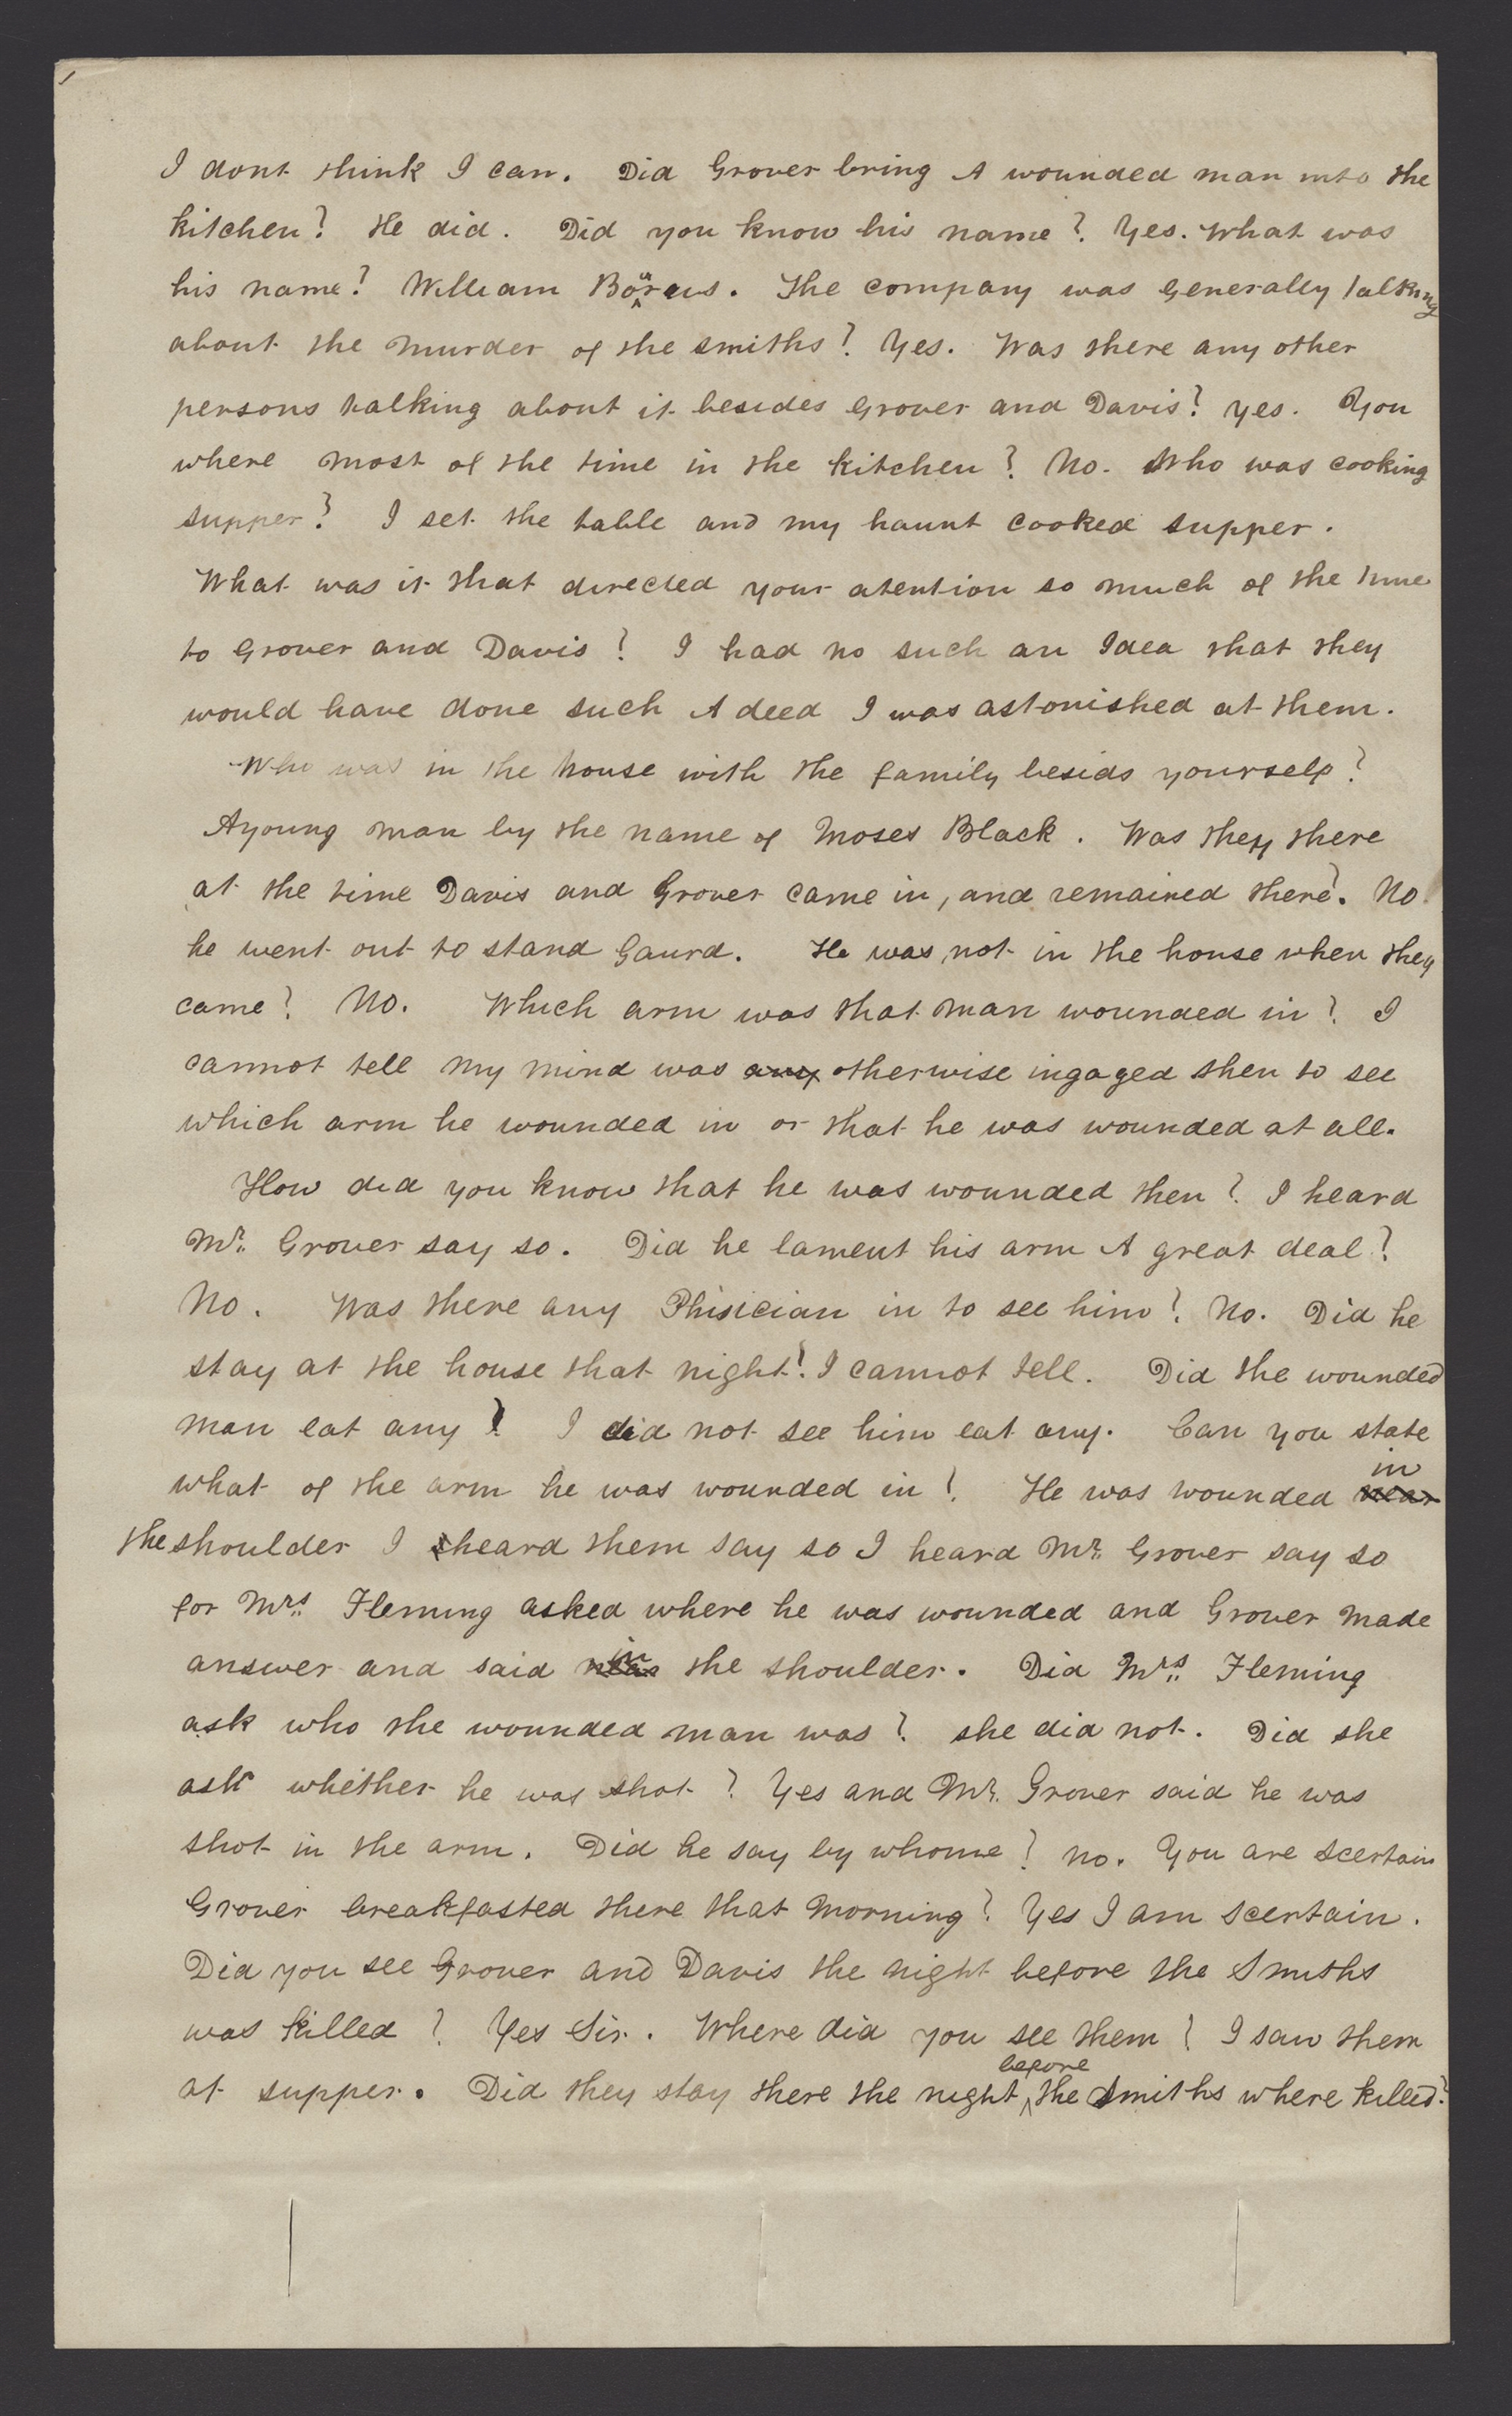 I dont think I can. Did Grover bring A wounded man into the
kitchen? He did. Did you know his name? Yes. What was
his name? William. The company was generally talking
about the murder of the smiths? Yes. Was there any other
persons talking about it besides Grover and Davis? yes. You
where most of the time in the kitchen? No. Who was cooking
supper? I set the table and my haunt cooked supper.
What was it that directed your atention so much of the time
to Grover and Davis? I had no such an Idea that they
would have done such A deed I was astonished at them.
Who was in the house with the family besids yourself?
A young man by the name of Moses Black. Was they there
at the time Davis and Grover came in, and remained there? No
he went out to stand Gaurd. He was not in the house when they
came? No. Which arm was that man wounded in? I
cannot tell my mind was any otherwise ingaged then to see
which arm he wounded in or that he was wounded at all.
How did you know that he was wounded then? I heard
Mr. Grover say so. Did he lament his arm A great deal?
No. Was there any Phisician in to see him? No. Did he
stay at the house that night? I cannot tell. Did the wounded
man eat any? I did not see him eat any. Can you state
what of the arm he was wounded in? He was wounded near in
the shoulder I heard them say so I heard Mr. Grover say so
for Mrs. Fleming asked where he was wounded and Grover made
answer and said near in the shoulder. Did Mrs. Fleming
ask who the wounded man was? she did not. Did she
ask whether he was shot? Yes and Mr. Grover said he was
shot in the arm. Did he say by whome? no. You are scertain
Grover breakfasted there that morning? Yes I am scertain.
Did you see Grover and Davis the night before the Smiths
was killed? Yes Sir. Where did you see them? I saw them
at supper. Did they stay there the night before the Smiths where killed?